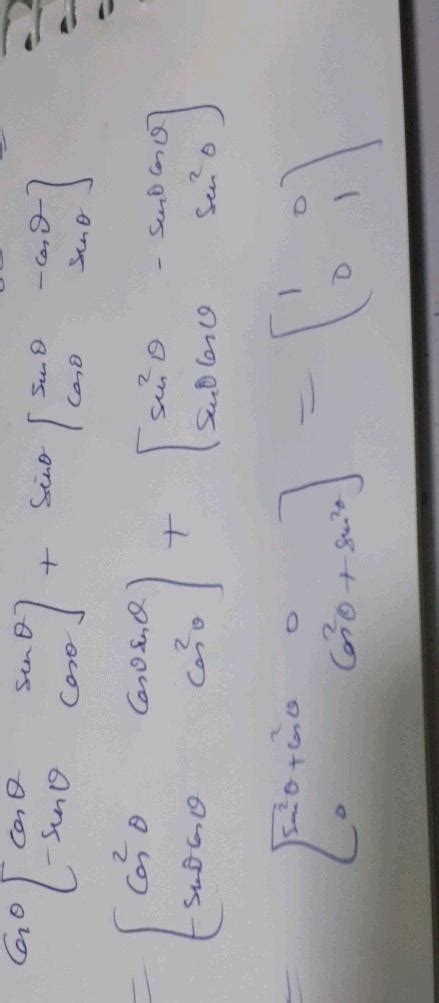 cosθ [ cosθ sinθ ] + sinθ [ sinθ -cosθ ]
-sinθ cosθ cosθ sinθ
= [ cos²θ cosθ sinθ ] + [ sin²θ - sinθ cosθ ]
-sinθ cosθ cos²θ sinθ cosθ sin²θ
= [ sin²θ + cos²θ 0 ] = [ 1 0 ]
0 cos²θ + sin²θ 0 1